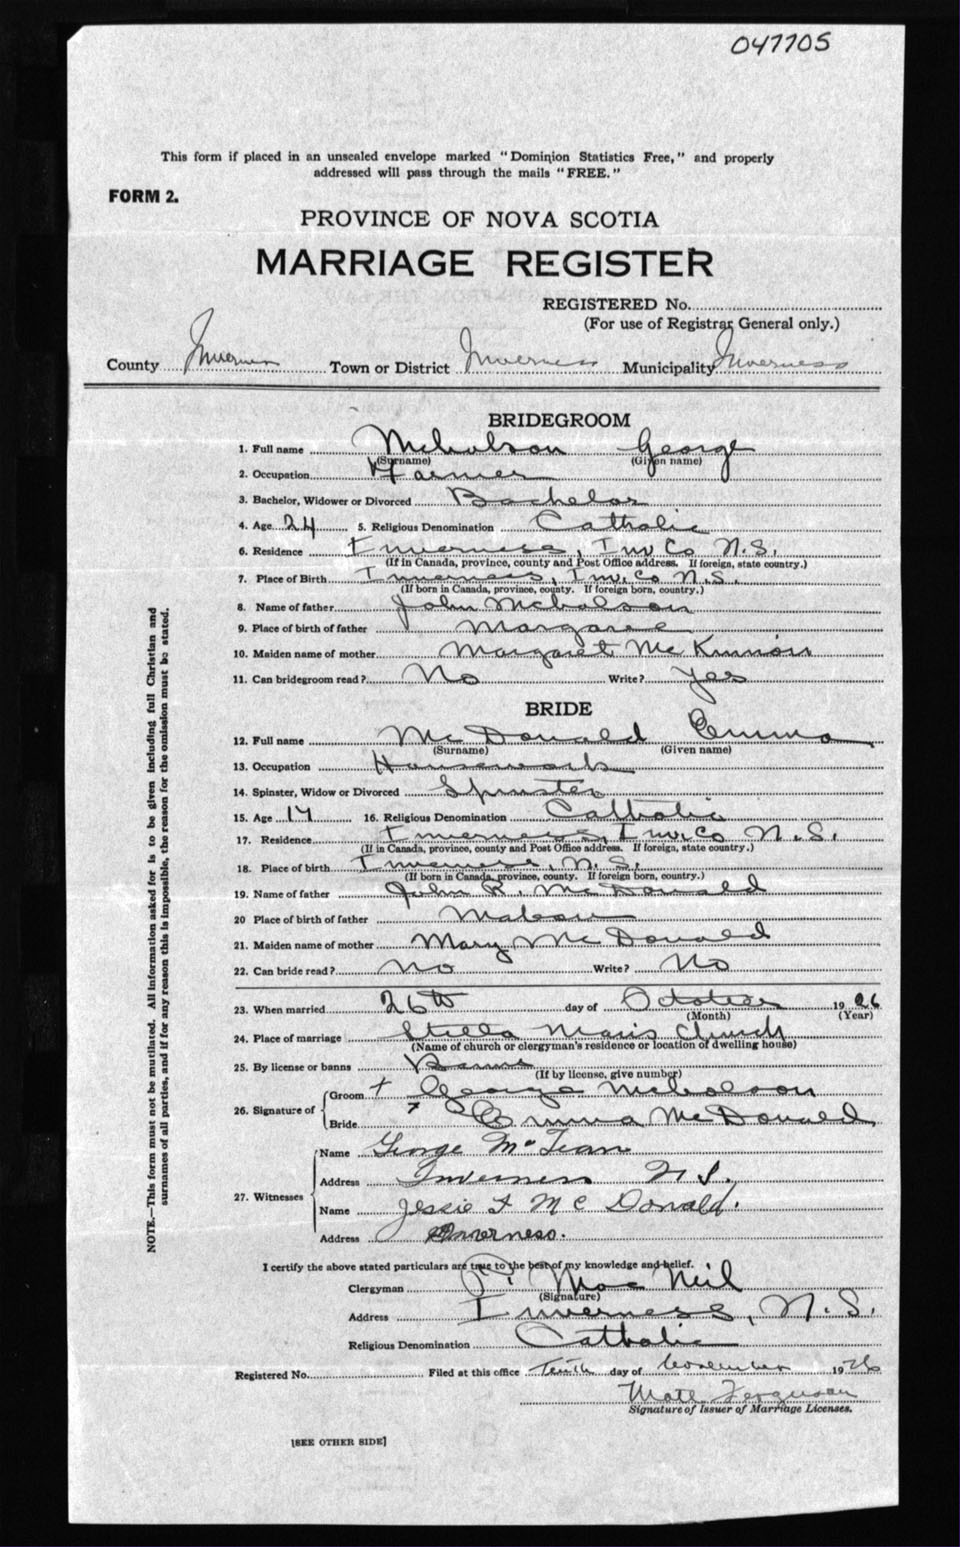 047705
This form if placed in an unsealed envelope marked "Dominion Statistics Free," and properly
addressed will pass through the mails "FREE."
FORM 2.
PROVINCE OF NOVA SCOTIA
MARRIAGE REGISTER
REGISTERED No.
(For use of Registrar General only.)
County Inverness Town or District Inverness Municipality Inverness
BRIDEGROOM
1. Full name Nicholson George
(Surname) (Given name)
2. Occupation Farmer
3. Bachelor, Widower or Divorced Bachelor
4. Age 24 5. Religious Denomination Catholic
6. Residence Inverness, Inv Co N.S.
(If in Canada, province, county and Post Office address. If foreign, state country.)
7. Place of Birth Inverness, Inv. Co N.S.
(If born in Canada, province, county. If foreign born, country.)
8. Name of father John Nicholson
9. Place of birth of father Margaree
10. Maiden name of mother Margaret Mc Kinnon
11. Can bridegroom read? No Write? Yes
BRIDE
12. Full name Mc Donald Emma
(Surname) (Given name)
13. Occupation Housework
14. Spinster, Widow or Divorced Spinster
15. Age 16. Religious Denomination Catholic
17. Residence Inverness, Inv. Co N.S.
(If in Canada, province, county and Post Office address. If foreign, state country.)
18. Place of birth Inverness, N.S.
(If born in Canada, province, county. If foreign born, country.)
19. Name of father John R. McDonald
20 Place of birth of father Mabou
21. Maiden name of mother Mary Mc Donald
22. Can bride read? No Write? No
23. When married 26th day of October 1926
(Month) (Year)
24. Place of marriage Stella Maris Church
(Name of church or clergyman's residence or location of dwelling house)
25. By license or banns Banns
(If by license, give number)
26. Signature of Groom George Nicholson
Bride Emma McDonald
27. Witnesses
Name George
Address Inverness N S.
Name Jessie Mc Donald.
Address Inverness.
I certify the above stated particulars are true to the best of my knowledge and belief.
Clergyman Mac Neil
(Signature)
Address Inverness, N.S.
Religious Denomination Catholic
Registered No. Filed at this office Tenth day of November 1926
Matt Ferguson
Signature of Issuer of Marriage Licenses.
[SEE OTHER SIDE]
NOTE.—This form must not be mutilated. All information asked for is to be given including full Christian and
surnames of all parties, and if for any reason this is impossible, the reason for the omission must be stated.